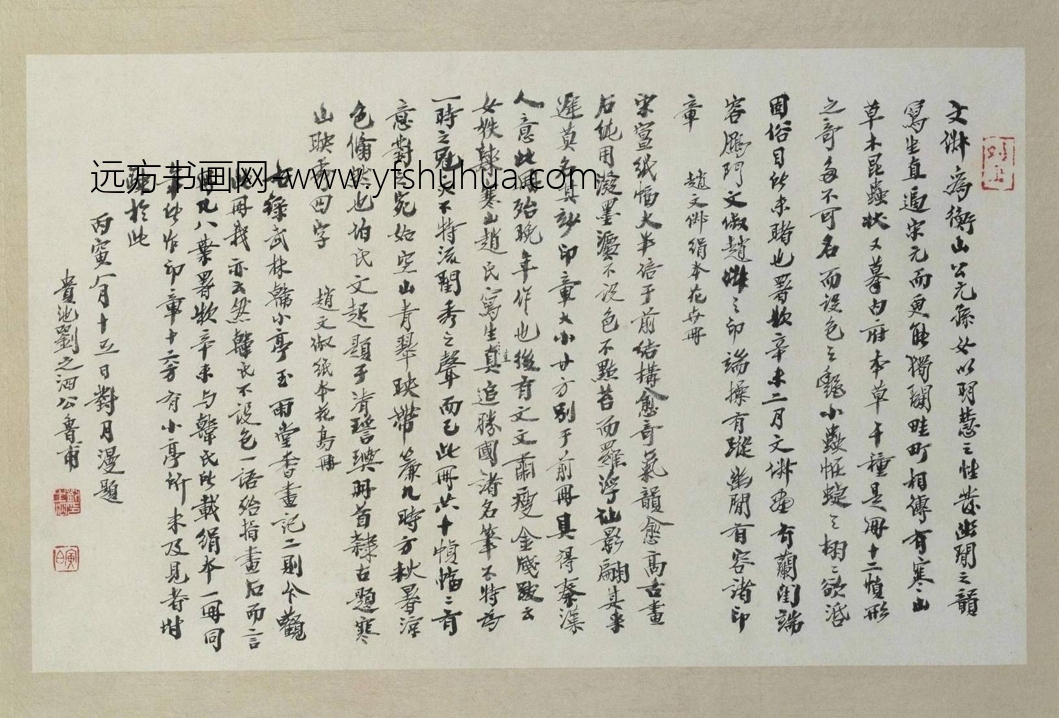 文俶為衡山公元孫女以明慧之性發幽閒之韻
寫生直逼宋元而更能獨闢畦町相傳有寒山
草木昆蟲狀又摹內府本草千種是冊十二幀形
之奇多不可名而設色之豔小蟲怪蜨之栩〻欲活
固俗目所未睹也署款辛未二月文俶畫於蘭閨端
容鴈門文俶趙俶之印端操有蹤幽閒有容諸印
章 趙文俶絹本花卉冊
宋箋紙幅大半倍于前結構愈奇氣韻愈高古畫
石純用凝墨瀋不設色不點苔而羅浮仙影翩其來
遲莫名其妙印章大小廿方別于前冊具得秦漢
人意此冊殆晚年作也後有文文肅瘦金戔跋云
女姪歸寒山趙氏寫生真追勝國諸名筆不特為
一時之冠又不特流閨秀之聲而已此冊共十幀幅〻有
意對之宛如空山青翠映帶簾几時方秋暑涼
色翛然也怕氏文起題于清瑤璵冊首隸古題寒
山映雪四字 趙文俶紙本花鳥冊
右錄武林韓小亭玉雨堂書畫記二則今觀
此冊我亦云然韓氏不設色一語殆指畫石而言
此凡八葉署款辛未与韓氏所載絹本一冊同
年所作印章十六方有小亭所未及見者坿
識於此
丙寅八月十五日對月漫題
貴池劉之泗公魯甫
远方书画网--www.yfshuhua.com